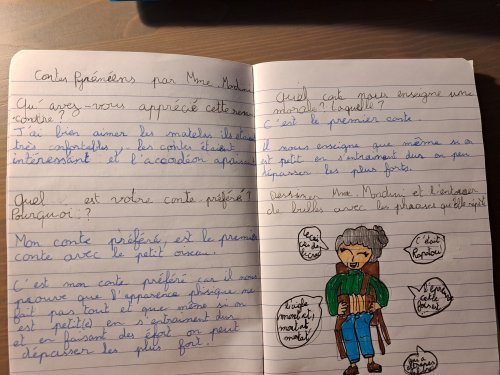 Contes Pyrénéens par Mme. Mondini
Qu'avez-vous apprécié cette ren
contre?
J'ai bien aimer les matelas ils étaient
très confortables, les contes étaient
intéressant et l'accordéon apaisant
Quel est votre conte préféré?
Pourquoi?
Mon conte préféré, est le premier
conte avec le petit oiseau.
C'est mon conte préféré car il nous
prouve que l'apparence physique ne
fait pas tout et que même si on
est petit(e) en s'entrainant dur
et en faisant des éfort on peut
dépasser les plus fort.
Quel conte nous enseigne une
morale? Laquelle?
C'est le premier conte.
Il nous enseigne que même si on
est petit en s'entrainant dur on peu
dépasser les plus forts.
Dessiner Mme Mondini et l'entourer
de bulles avec les phrases qu'elle répète
C'était
L'aigle
mont et,
mont et